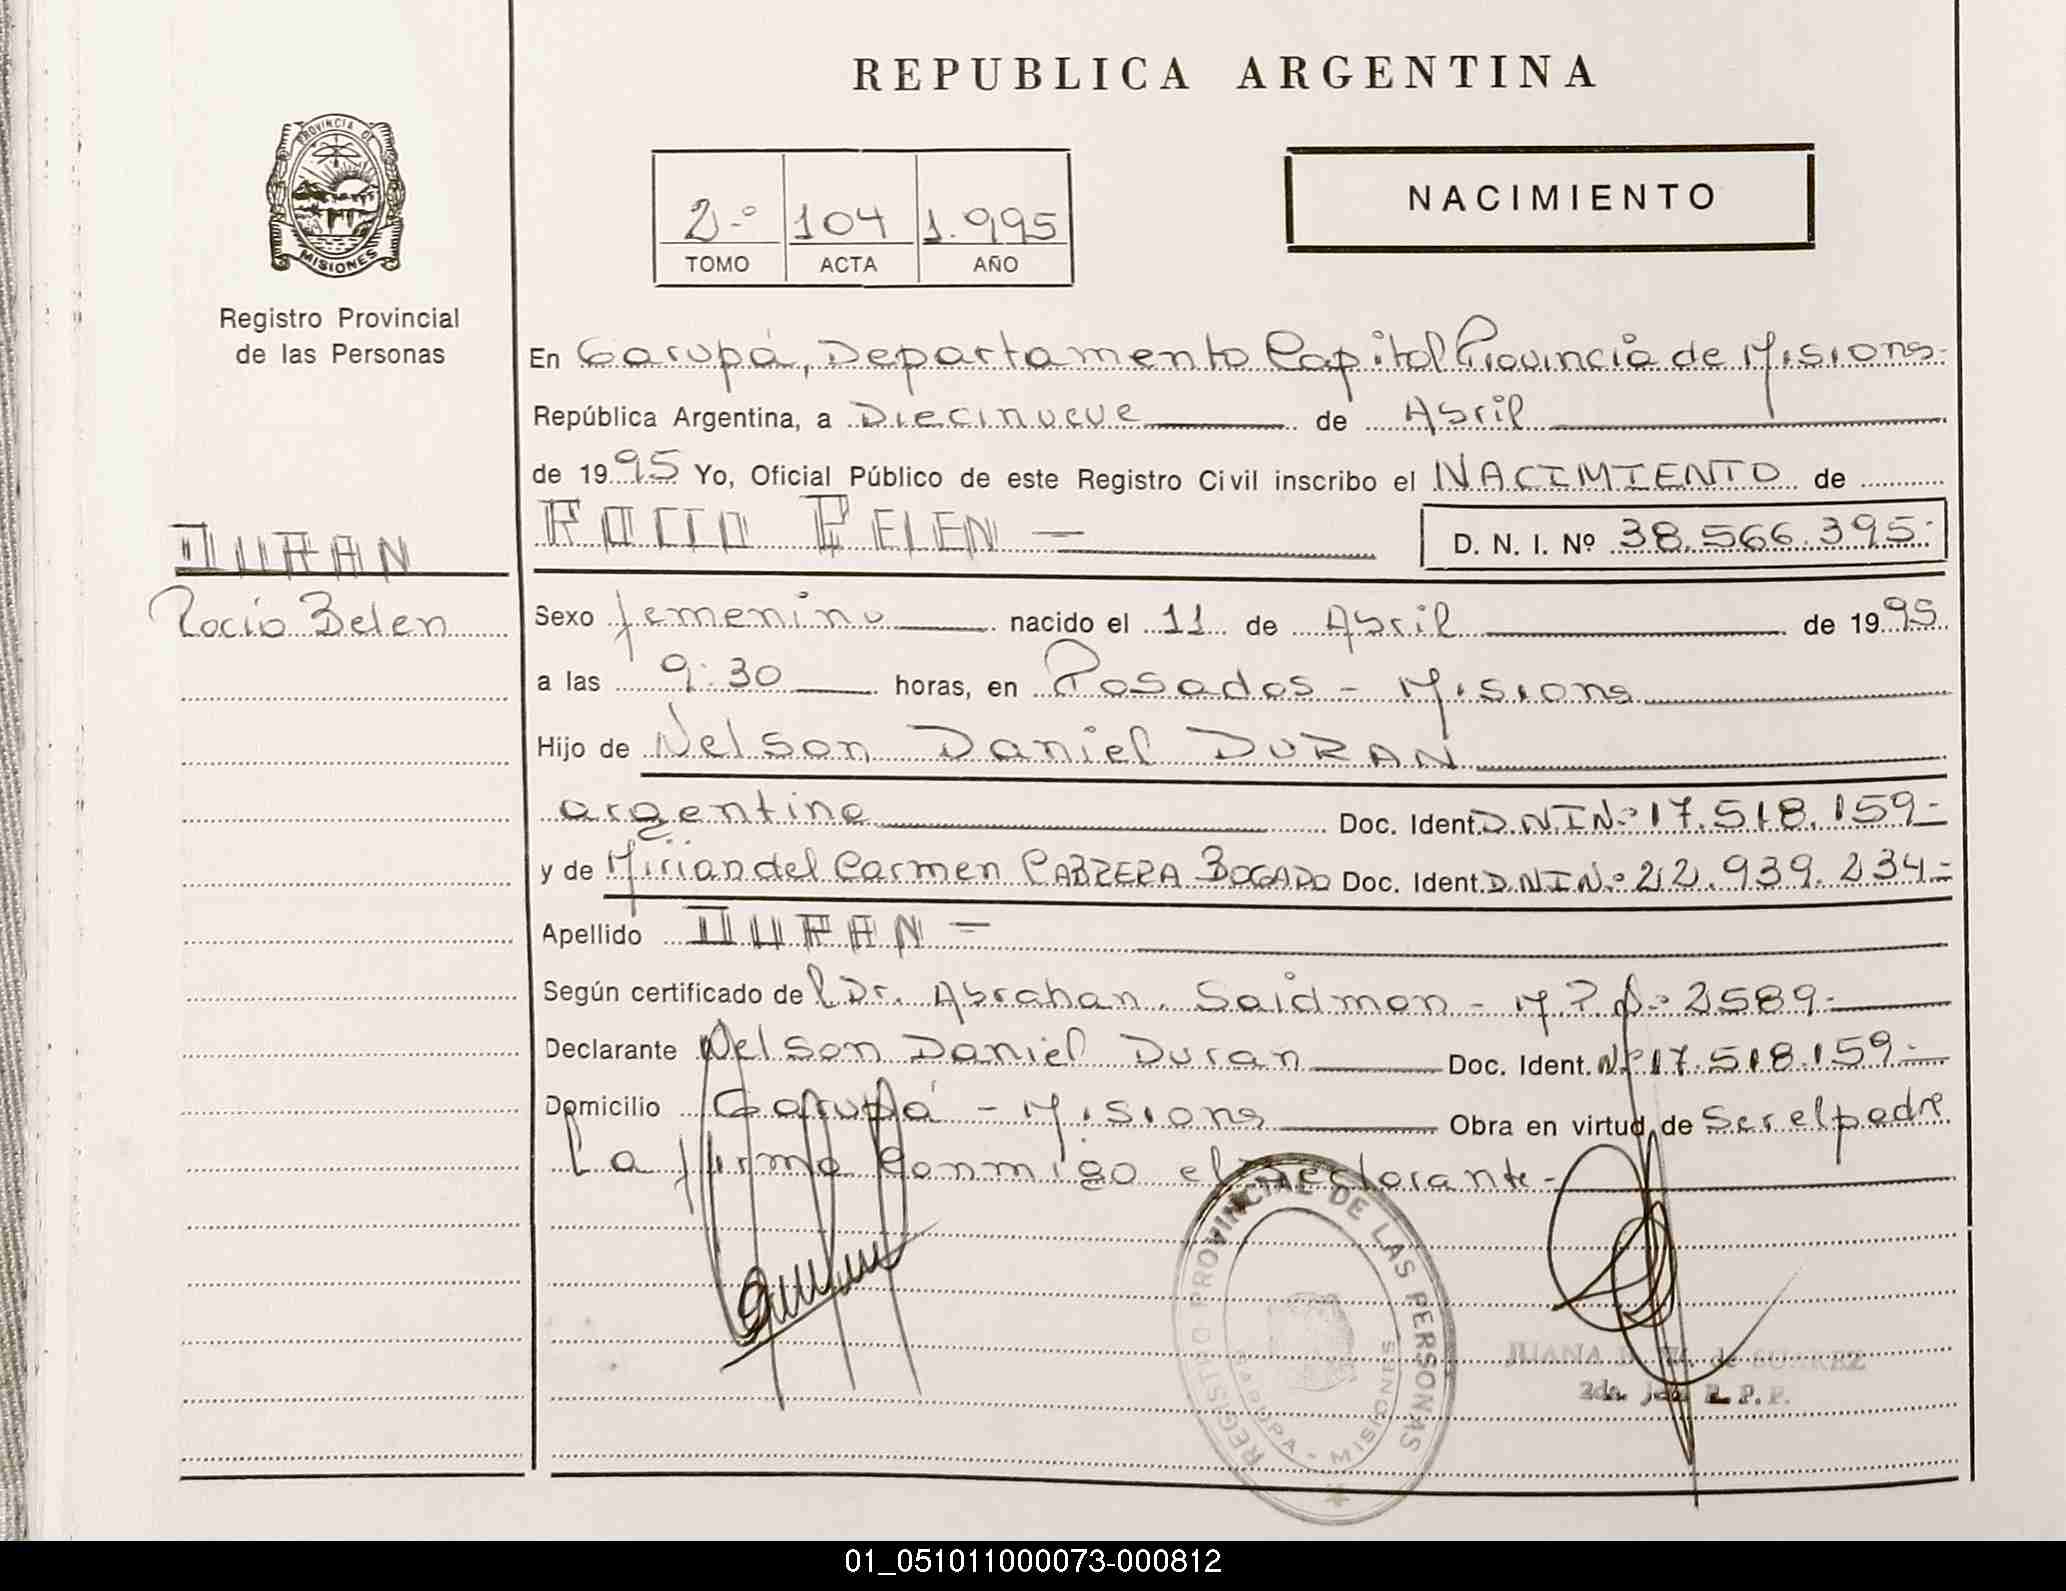 REPUBLICA ARGENTINA
PROVINCIA DE
MISIONES
Registro Provincial
de las Personas
2.º 104 1.995
TOMO ACTA AÑO
NACIMIENTO
En Garupá, Departamento Capital Provincia de Misiones-
República Argentina, a Diecinueve de Abril
de 1995 Yo, Oficial Público de este Registro Civil inscribo el NACIMIENTO de
DURAN
Rocio Belen
ROCIO BELEN —
D. N. I. Nº 38.566.395.-
Sexo femenino nacido el 11 de Abril de 1995
a las 9:30 horas, en Posadas - Misiones
Hijo de Nelson Daniel DURAN
argentino Doc. Ident. D.N.I.Nº 17.518.159-
y de Mirian del Carmen CABRERA BOGADO Doc. Ident. D.N.I.Nº 22.939.234-
Apellido DURAN -
Según certificado de l Dr. Abrahan Saidman - M.P.Nº 2589.-
Declarante Nelson Daniel Duran Doc. Ident. Nº 17.518.159.-
Domicilio Garupá - Misiones Obra en virtud de Ser el padre
La firma Conmigo el Declarante-
REGISTRO PROVINCIAL DE LAS PERSONAS
GARUPA - MISIONES
JUANA de SUAREZ
2da. R. P. P.
01_051011000073-000812